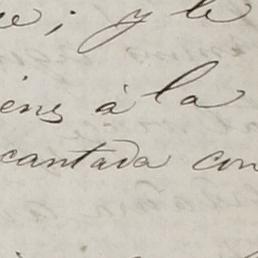 e; y le
iens á la
cantada con